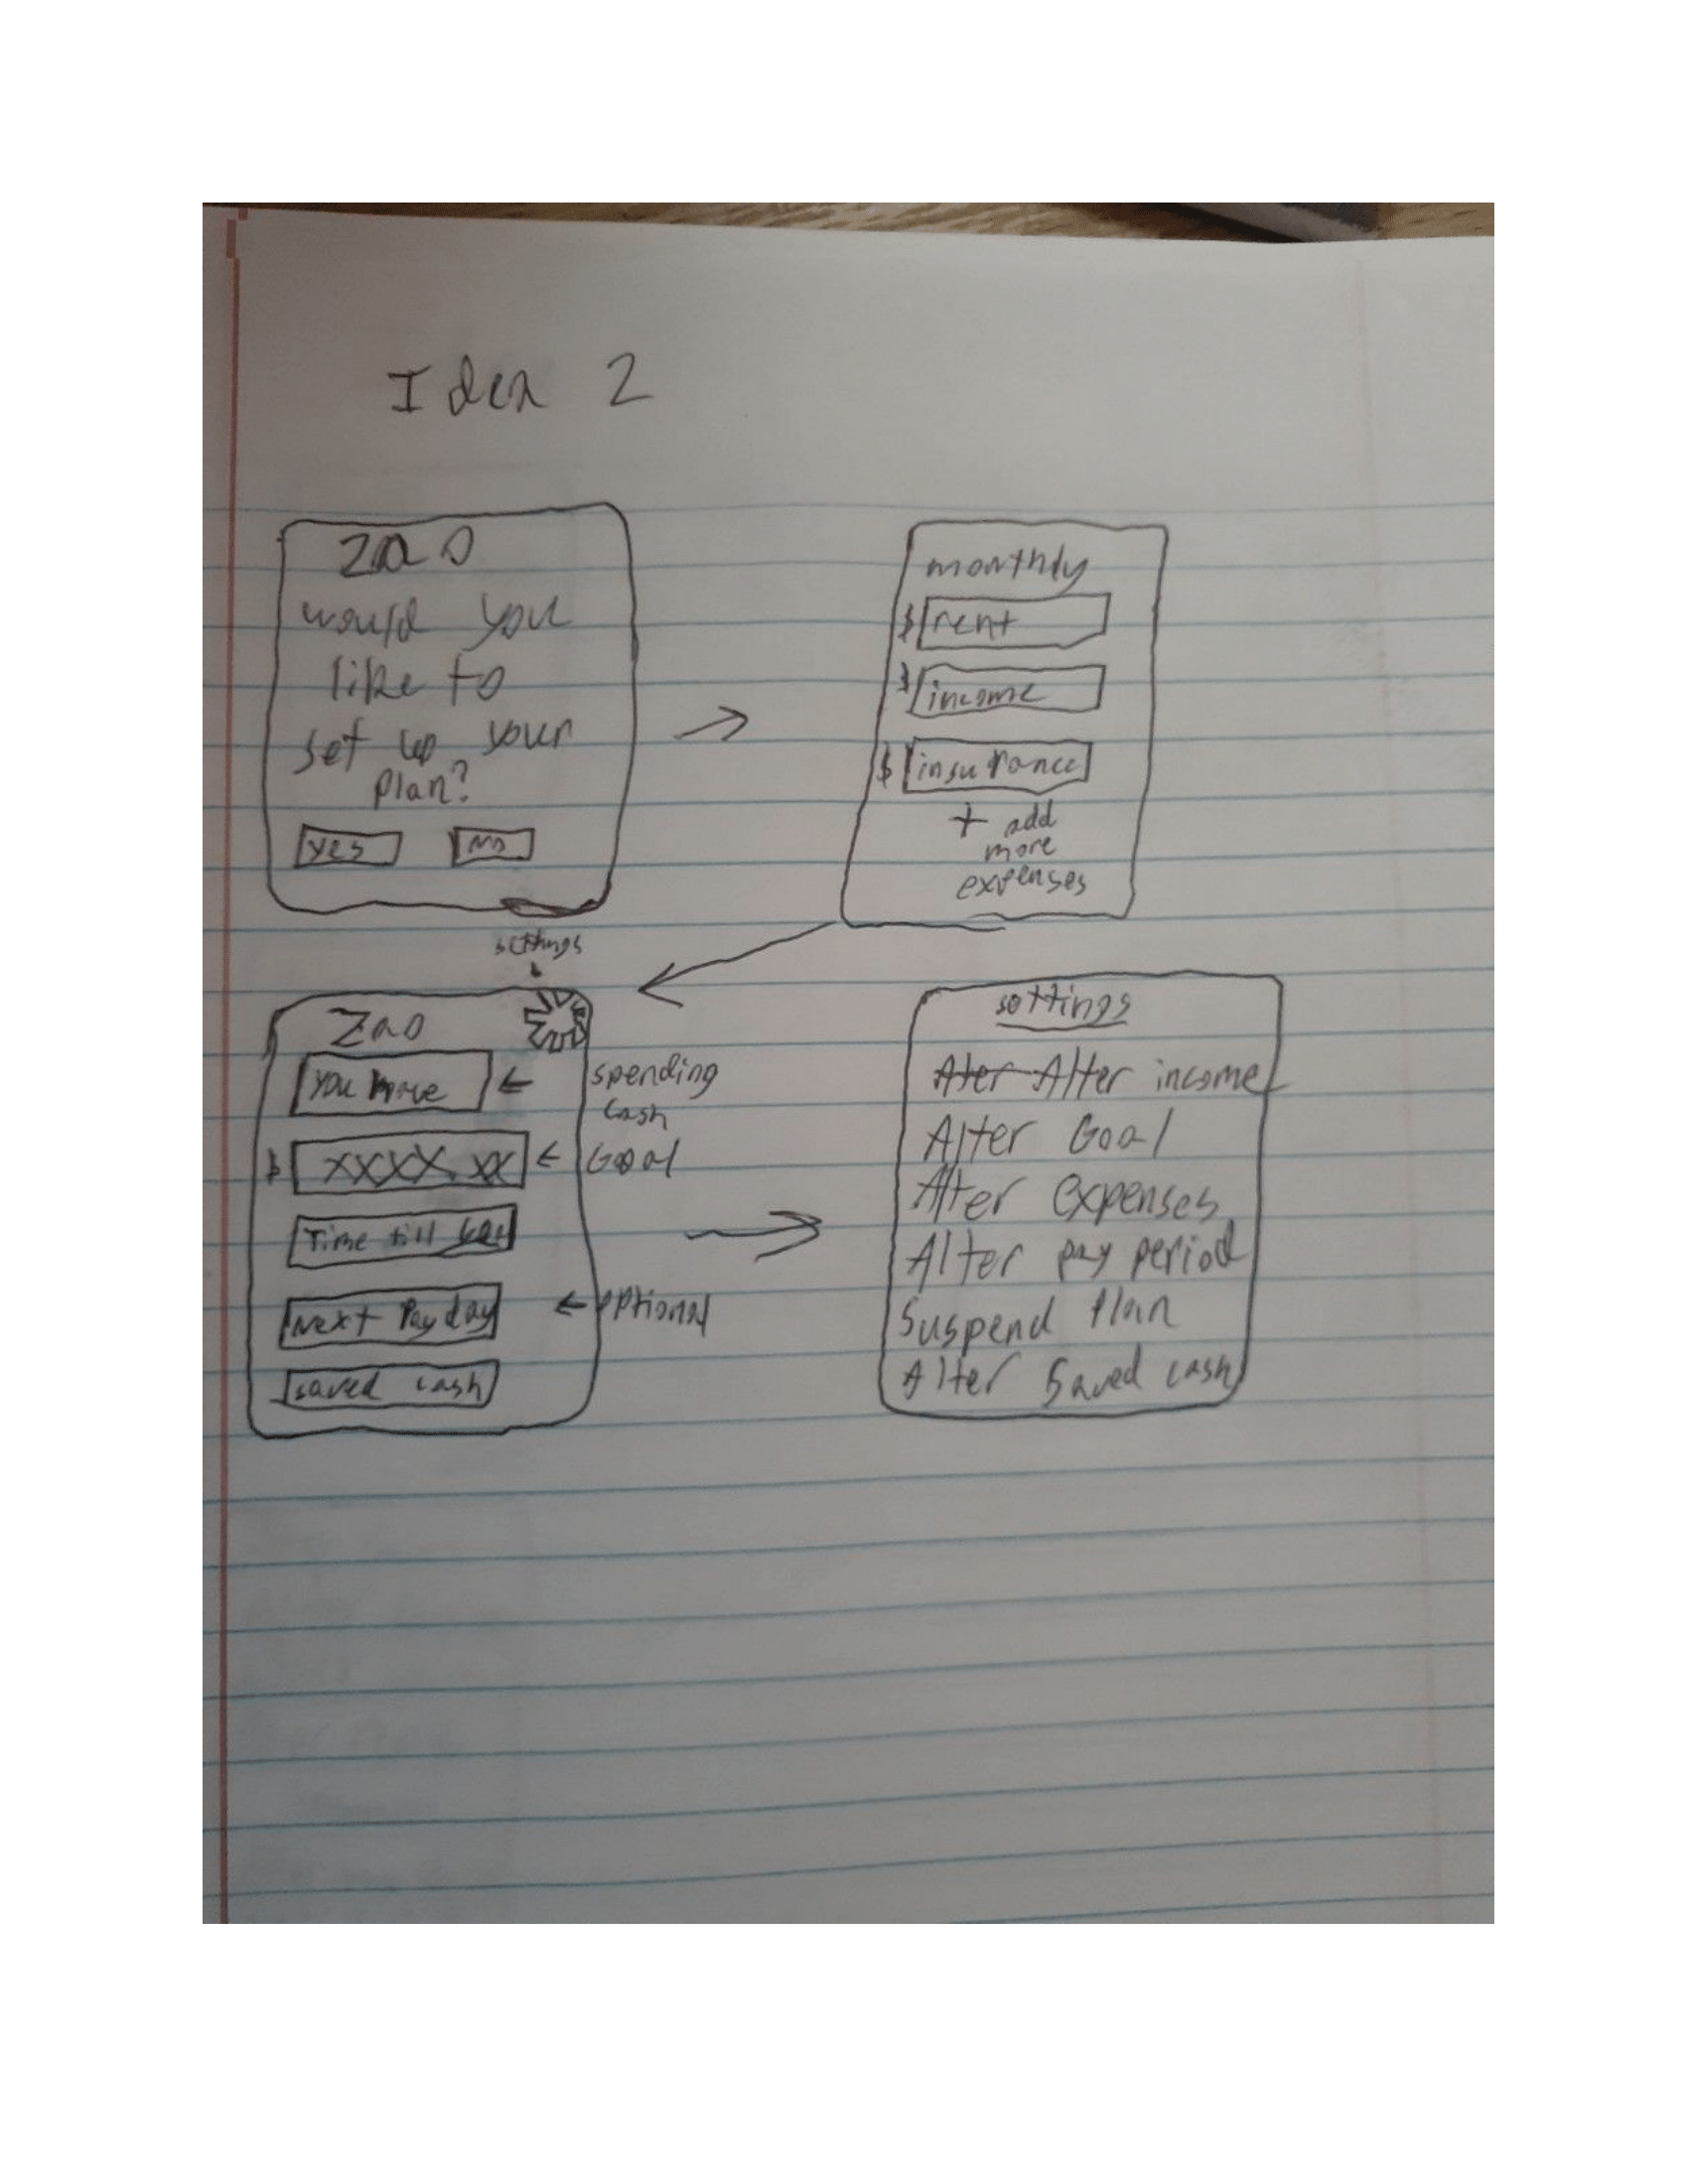 Idea 2
Zao
would you
like to
set up your
plan?
yes
No
monthly
$ rent
$ income
$ insurance
+ add
more
expenses
settings
Zao
you have ← spending
cash
$ XXXX.XX ← Goal
Time till Goal
Next Payday ← optional
saved cash
settings
Ater Alter income
Alter Goal
Alter expenses
Alter pay period
Suspend Plan
Alter Saved cash